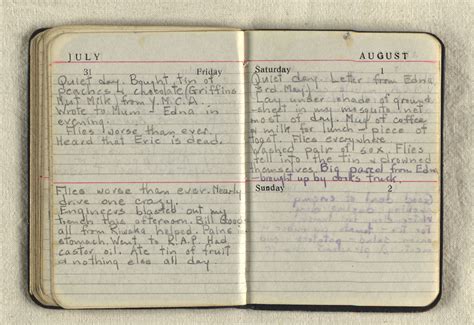 JULY
31 Friday
Quiet day. Bought tin of
peaches & chocolate (Griffins
Nut Milk) from Y.M.C.A.
Wrote to Mum - Edna in
evening.
Flies worse than ever.
Heard that Eric is dead.
Flies worse than ever. Nearly
drive one crazy.
Engineers blasted out my
trench this afternoon. Bill Good-
all from helped. Pains
stomach. Went to R.A.P. Had
castor oil. Ate tin of fruit
& nothing else all day.
AUGUST
Saturday 1
Quiet day. Letter from Edna
(3rd May)
Lay under shade of ground-
sheet in my mosquito net
most of day. Mug of coffee
& milk for lunch - piece of
toast. Flies everywhere
Washed pair of sox. Flies
fell into the tin & drowned
themselves. Big parcel from Edna
- brought up by cooks truck.
Sunday 2